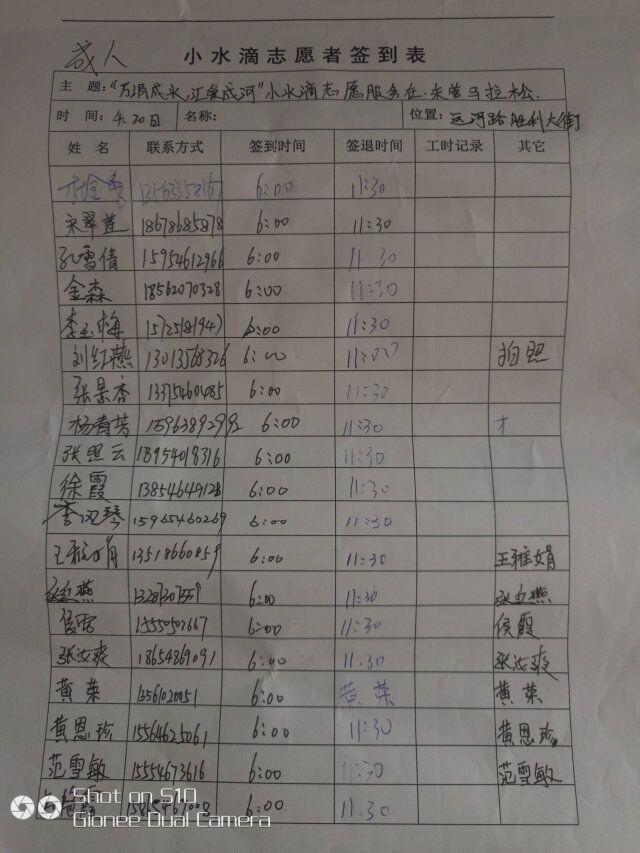 成人
小水滴志愿者签到表
主 题："万涓成水,汇爱成河"小水滴志愿服务在 东营马拉松.
时 间：4.20日 名称： 位置：运河路胜利大街
姓 名 联系方式 签到时间 签退时间 工时记录 其它
6:00 11:30
宋翠莲 18678685878 6:00 11:30
孔雪倩 15954612966 6:00 11:30
金森 18562070328 6:00 11:30
李玉梅 15725818947 6:00 11:30
刘红燕 13013568326 6:00 11:00 拍照
张景杏 13375460485 6:00 11:30
杨春芳 15963892992 6:00 11:30 才
张照云 18954018316 6:00 11:30
徐霞 13854649128 6:00 11:30
15965460269 6:00 11:30
王雅娟 13518660059 6:00 11:30 王雅娟
张红燕 13287307559 6:00 11:30 张红燕
侯霞 15550502667 6:00 11:30 侯霞
张汝爽 18654869091 6:00 11.30 张汝爽
黄荣 13561020051 6:00 黄荣 黄荣
黄恩珍 15564625061 6:00 11:30 黄恩珍
范雪敏 15554673616 6:00 11:30 范雪敏
6:00 11.30
Shot on S10
Gionee Dual Camera